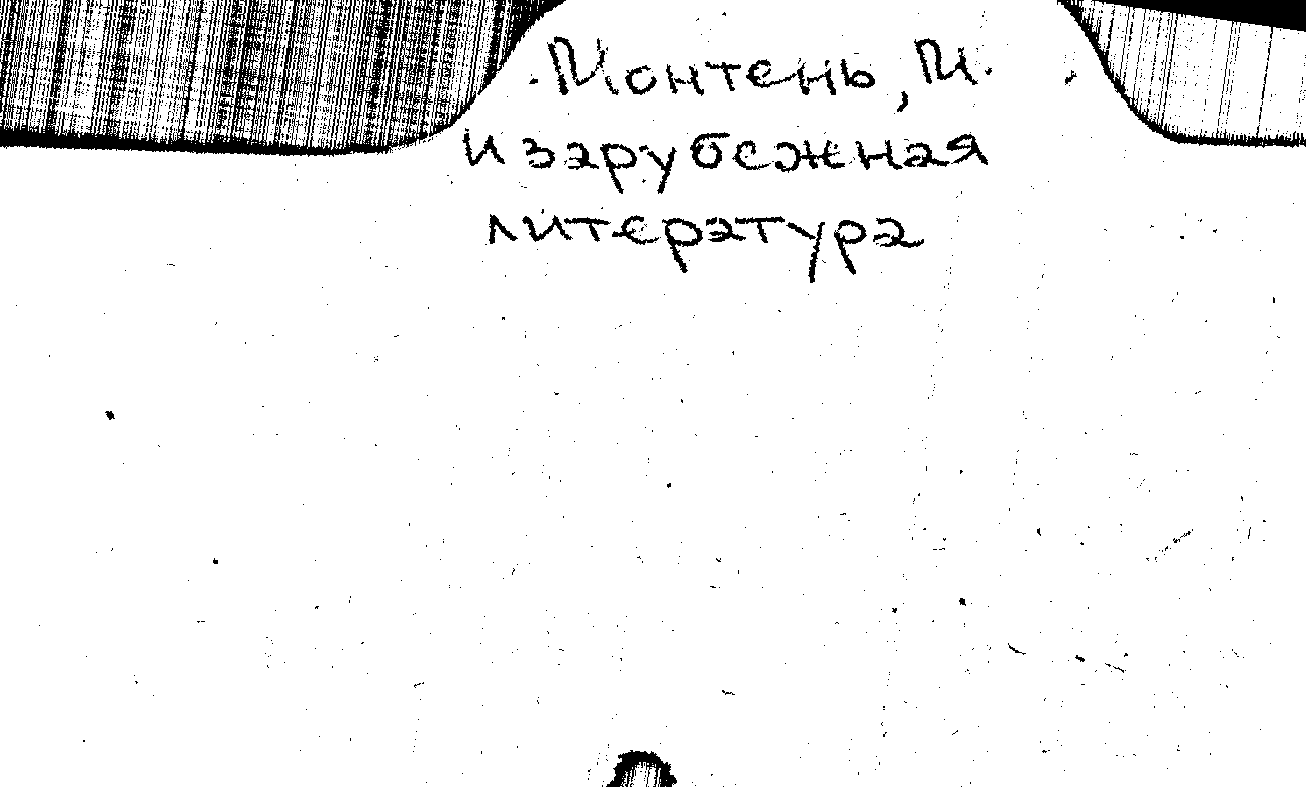 Монтень, М.
и зарубежная
литература